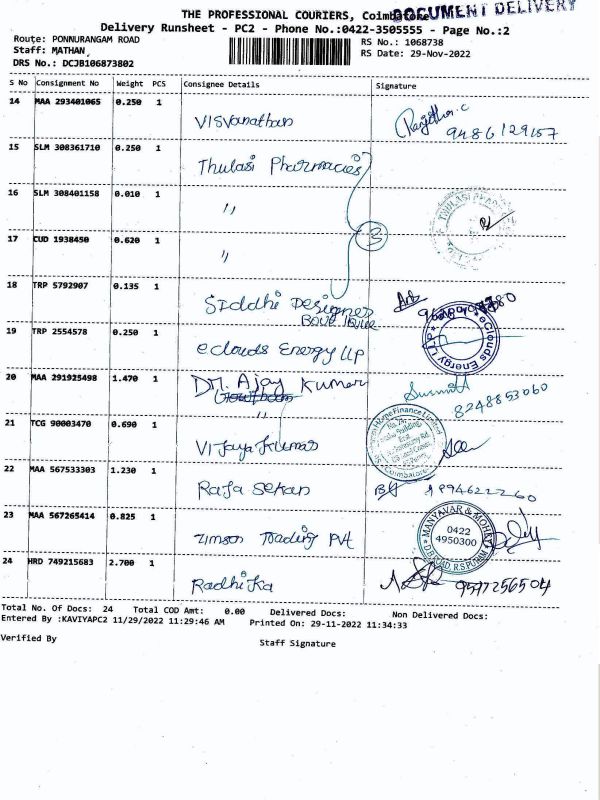 THE PROFESSIONAL COURIERS, Coimbatore
DOCUMENT DELIVERY
Delivery Runsheet - PC2 - Phone No.:0422-3505555 - Page No.:2
Route: PONNURANGAM ROAD
RS No.: 1068738
Staff: MATHAN
RS Date: 29-Nov-2022
DRS No.: DCJB106873802
S No Consignment No Weight PCS Consignee Details Signature
14 MAA 293401065 0.250 1
Visvanathan
Ranjitha.c
9486129157
15 SLM 308361710 0.250 1
Thulasi Pharmacies
16 SLM 308401158 0.010 1
"
17 CUD 1938450 0.620 1
3
"
18 TRP 5792907 0.135 1
Siddhi Designer
19 TRP 2554578 0.250 1
eclouds Energy LLP
eClouds Energy LLP
20 MAA 291925498 1.470 1
Dr. Ajay Kumar
Gowtham
"
8248853060
21 TCG 90003470 0.690 1
Home Finance Limited
Coimbatore
Vijaya Kumar
22 MAA 567533303 1.230 1
Raja Sekar
9994622260
23 MAA 567265414 0.825 1
MANYAVAR & MOHEY
0422
4950300
D.B. ROAD, R.S. PURAM
Zimson Trading Pvt
24 HRD 749215683 2.700 1
Radhika
9597256504
Total No. Of Docs: 24 Total COD Amt: 0.00 Delivered Docs: Non Delivered Docs:
Entered By :KAVIYAPC2 11/29/2022 11:29:46 AM Printed On: 29-11-2022 11:34:33
Verified By
Staff Signature